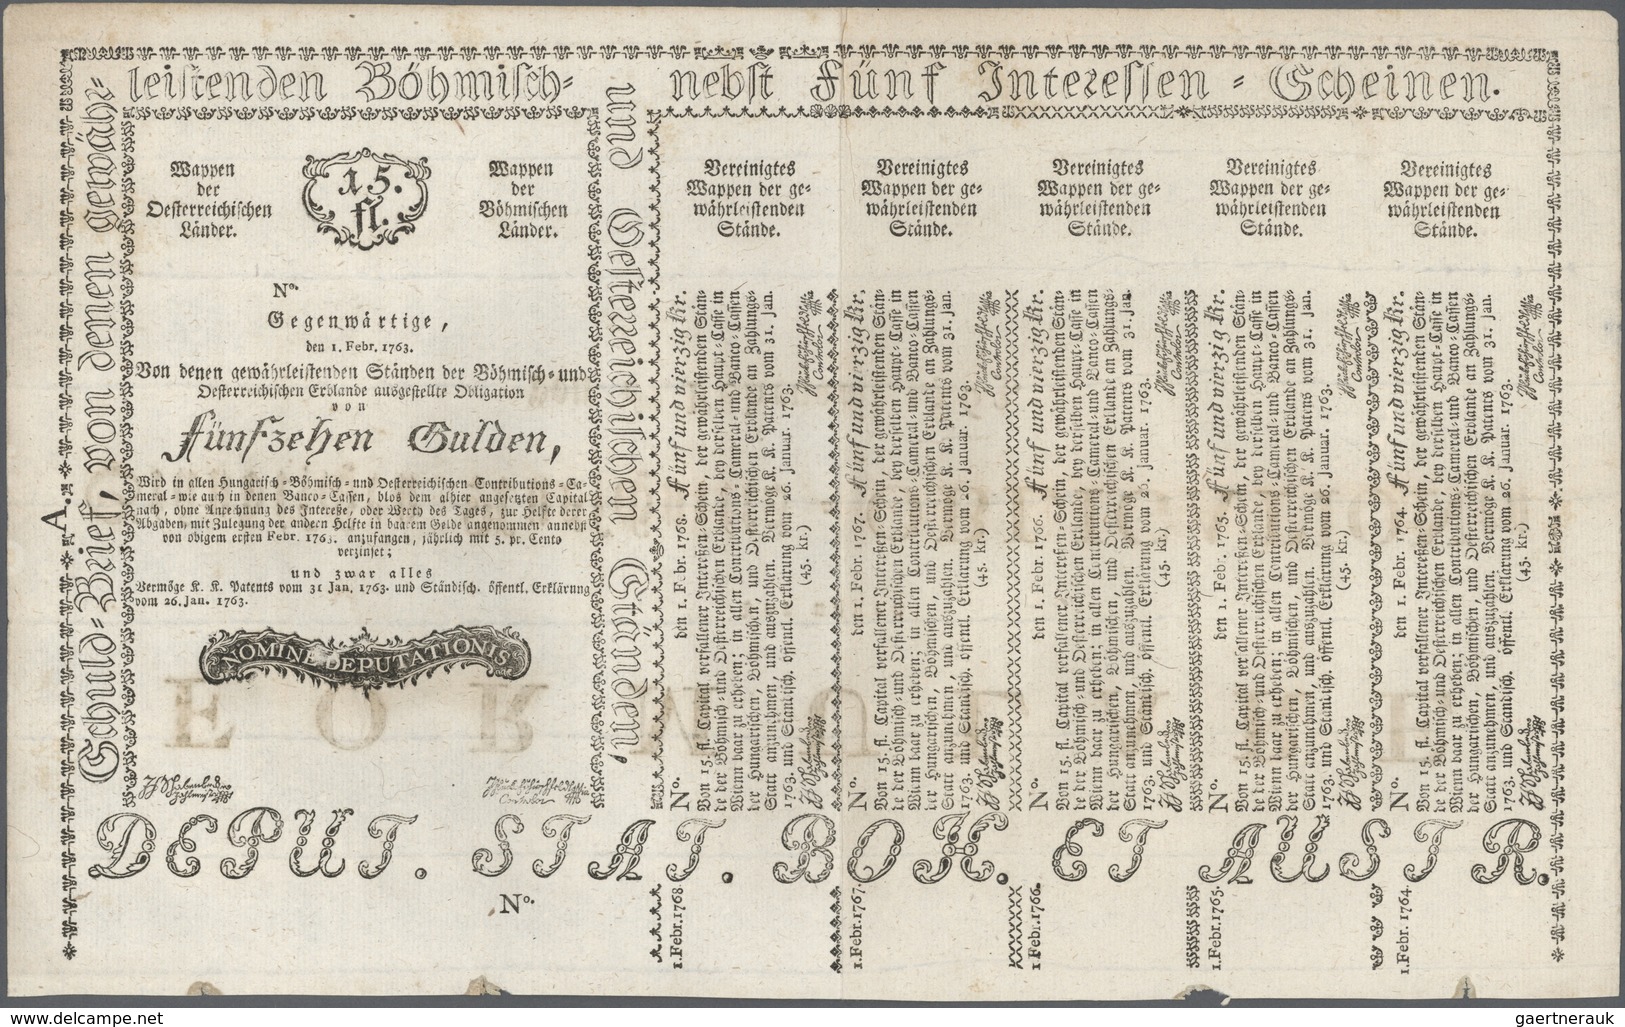 leistenden Böhmisch- nebst Fünf Interessen-Scheinen.
A. Schuld-Brief, von denen gewähr-
und Oesterreichischen Ständen,
Wappen
der
Oesterreichischen
Länder.
15.
fl.
Wappen
der
Böhmischen
Länder.
No.
Gegenwärtige,
den 1. Febr. 1763.
Von denen gewährleistenden Ständen der Böhmisch- und
Oesterreichischen Erblande ausgestellte Obligation
von
Fünfzehen Gulden,
Wird in allen Hungarisch-Böhmisch- und Oesterreichischen Contributions-Ca-
meral- wie auch in denen Banco-Cassen, blos dem alhier angesetzten Capital
nach, ohne Anrechnung des Interesse, oder Werth des Tages, zur Helfte derer
Abgaben, mit Zulegung der andern Helfte in baarem Gelde angenommen annebst
von obigem ersten Febr. 1763. anzufangen, jährlich mit 5. pr. Cento
verzinset;
und zwar alles
Vermöge K. K. Patents vom 31 Jan. 1763. und Ständisch. öffentl. Erklärung
vom 26. Jan. 1763.
NOMINE DEPUTATIONIS
Contrelor
Vereinigtes
Wappen der ge-
währleistenden
Stände.
No. den 1. Febr. 1768. Fünf und vierzig kr.
Von 15. fl. Capital verfallener Interessen-Schein, der gewährleistenden Stän-
de der Böhmisch- und Oesterreichischen Erblande, bey derselben Haupt-Casse in
Wienn baar zu erheben; in allen Contributions-Cameral- und Banco-Cassen
der Hungarischen, Böhmischen, und Oesterreichischen Erblande an Zahlungs-
Statt anzunehmen, und auszuzahlen. Vermöge K. K. Patents vom 31. Jan.
1763. und Ständisch. öffentl. Erklärung vom 26. Januar. 1763.
(45. kr.)
Contrelor
Vereinigtes
Wappen der ge-
währleistenden
Stände.
No. den 1. Febr. 1767. Fünf und vierzig kr.
Von 15. fl. Capital verfallener Interessen-Schein, der gewährleistenden Stän-
de der Böhmisch- und Oesterreichischen Erblande, bey derselben Haupt-Casse in
Wienn baar zu erheben; in allen Contributions-Cameral- und Banco-Cassen
der Hungarischen, Böhmischen, und Oesterreichischen Erblande an Zahlungs-
Statt anzunehmen, und auszuzahlen. Vermöge K. K. Patents vom 31. Jan.
1763. und Ständisch. öffentl. Erklärung vom 26. Januar. 1763.
(45. kr.)
Contrelor
Vereinigtes
Wappen der ge-
währleistenden
Stände.
No. den 1. Febr. 1766. Fünf und vierzig kr.
Von 15. fl. Capital verfallener Interessen-Schein, der gewährleistenden Stän-
de der Böhmisch- und Oesterreichischen Erblande, bey derselben Haupt-Casse in
Wienn baar zu erheben; in allen Contributions-Cameral- und Banco-Cassen
der Hungarischen, Böhmischen, und Oesterreichischen Erblande an Zahlungs-
Statt anzunehmen, und auszuzahlen. Vermöge K. K. Patents vom 31. Jan.
1763. und Ständisch. öffentl. Erklärung vom 26. Januar. 1763.
(45. kr.)
Contrelor
Vereinigtes
Wappen der ge-
währleistenden
Stände.
No. den 1. Febr. 1765. Fünf und vierzig kr.
Von 15. fl. Capital verfallener Interessen-Schein, der gewährleistenden Stän-
de der Böhmisch- und Oesterreichischen Erblande, bey derselben Haupt-Casse in
Wienn baar zu erheben; in allen Contributions-Cameral- und Banco-Cassen
der Hungarischen, Böhmischen, und Oesterreichischen Erblande an Zahlungs-
Statt anzunehmen, und auszuzahlen. Vermöge K. K. Patents vom 31. Jan.
1763. und Ständisch. öffentl. Erklärung vom 26. Januar. 1763.
(45. kr.)
Contrelor
Vereinigtes
Wappen der ge-
währleistenden
Stände.
No. den 1. Febr. 1764. Fünf und vierzig kr.
Von 15. fl. Capital verfallener Interessen-Schein, der gewährleistenden Stän-
de der Böhmisch- und Oesterreichischen Erblande, bey derselben Haupt-Casse in
Wienn baar zu erheben; in allen Contributions-Cameral- und Banco-Cassen
der Hungarischen, Böhmischen, und Oesterreichischen Erblande an Zahlungs-
Statt anzunehmen, und auszuzahlen. Vermöge K. K. Patents vom 31. Jan.
1763. und Ständisch. öffentl. Erklärung vom 26. Januar. 1763.
(45. kr.)
Contrelor
DEPUT. STAT. BOH. ET AUSTR.
No.
1. Febr. 1768.
1. Febr. 1767.
1. Febr. 1766.
1. Febr. 1765.
1. Febr. 1764.
www.delcampe.net
gaertnerauk